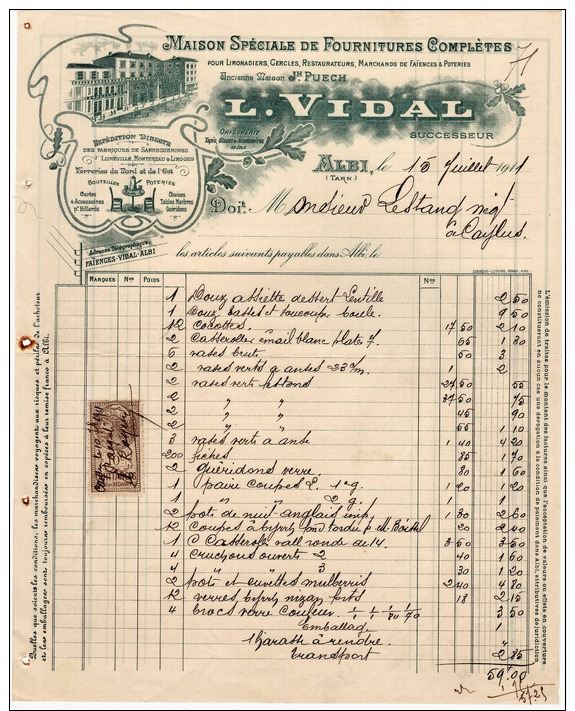 MAISON SPÉCIALE DE FOURNITURES COMPLÈTES
POUR LIMONADIERS, CERCLES, RESTAURATEURS, MARCHANDS DE FAÏENCES & POTERIES
Ancienne Maison Jh PUECH
L. VIDAL
SUCCESSEUR
ORFÈVRERIE
EXPÉDITION DIRECTE
DES FABRIQUES DE SARREGUEMINES
LUNÉVILLE, MONTEREAU & LIMOGES
Verreries du Nord et de l'Est
BOUTEILLES POTERIES
Queues & Accessoires pr Billards
Chaises Tables Marbres Guéridons
ALBI, le 15 Juillet 1911
(TARN)
Doit Monsieur Lestang négt
à Caylus
Adresse Télégraphique:
FAÏENCES-VIDAL-ALBI
les articles suivants payables dans Albi, le
MARQUES Nos POIDS Nos
1 Douz assiette dessert Lentille 2 50
1 Douz tasses et soucoupe boule 9 50
12 Cocottes 17 50 2 10
2 Casseroles émail blanc plates 7 65 1 30
6 vases bruts 50 3
2 vases verts 4 anses 23 c/m 1 2
2 vases verts 27 50 55
2 " " 37 50 75
2 " " 45 90
2 " " 55 1 10
3 vases verts à anse 1 40 4 20
200 fiches 85 1 70
2 Guéridons verre 80 1 60
1 paire coupes L. 1 g. 1 20 1 20
1 " " 2 g. 1 1
2 pots de nuit anglais imp. 1 30 2 60
12 coupes à 20 2 40
1 C Casserole ronde de 14 3 50 3 50
4 cruchons ouverts 2 40 1 60
4 " " 3 30 1 20
2 pots et cuvettes mulberris 2 40 4 80
12 verres forts 18 2 15
4 brocs verre couleur 3 50
Emballag 1
1 harash à rendre
transport 2 85
59.00
57.25
Quelles que soient les conditions, les marchandises voyagent aux risques et périls de l'acheteur
et les emballages sont toujours remboursés en espèces à leur remise franco à Albi.
L'émission de traites pour le montant des factures ainsi que l'acceptation de valeurs ou effets en couverture
ne constitueront en aucun cas une dérogation à la condition de paiement dans Albi, attributives de juridiction